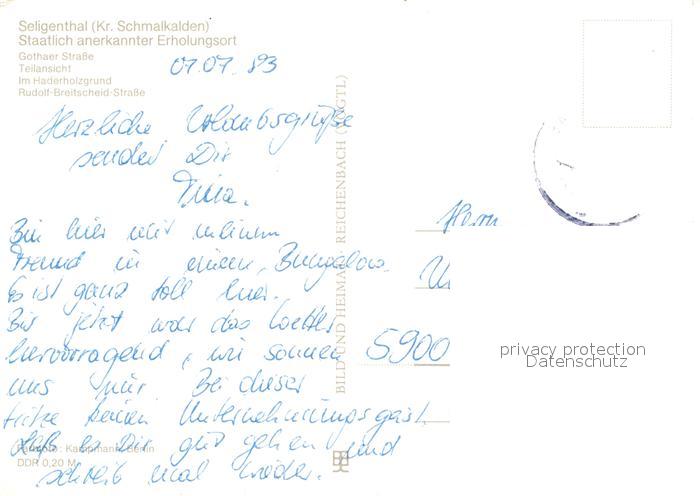 Seligenthal (Kr. Schmalkalden)
Staatlich anerkannter Erholungsort
Gothaer Straße
Teilansicht
Im Haderholzgrund
Rudolf-Breitscheid-Straße
07.07.83
Herzliche Urlaubsgrüße
sendet Dir
Tina.
Bin hier mit meinem
Freund in einem Bungalow.
Es ist ganz toll hier.
Bis jetzt war das Wetter
hervorragend, wir sonnen
uns nur Bei dieser
Hitze keinen Unternehmungsgeist.
Laß es Dir gut gehen und
schreib mal wieder.
Farbfoto: Kampmann, Berlin
DDR 0,20 M
BILD UND HEIMAT REICHENBACH (VOGTL)
Herrn
5900
privacy protection
Datenschutz